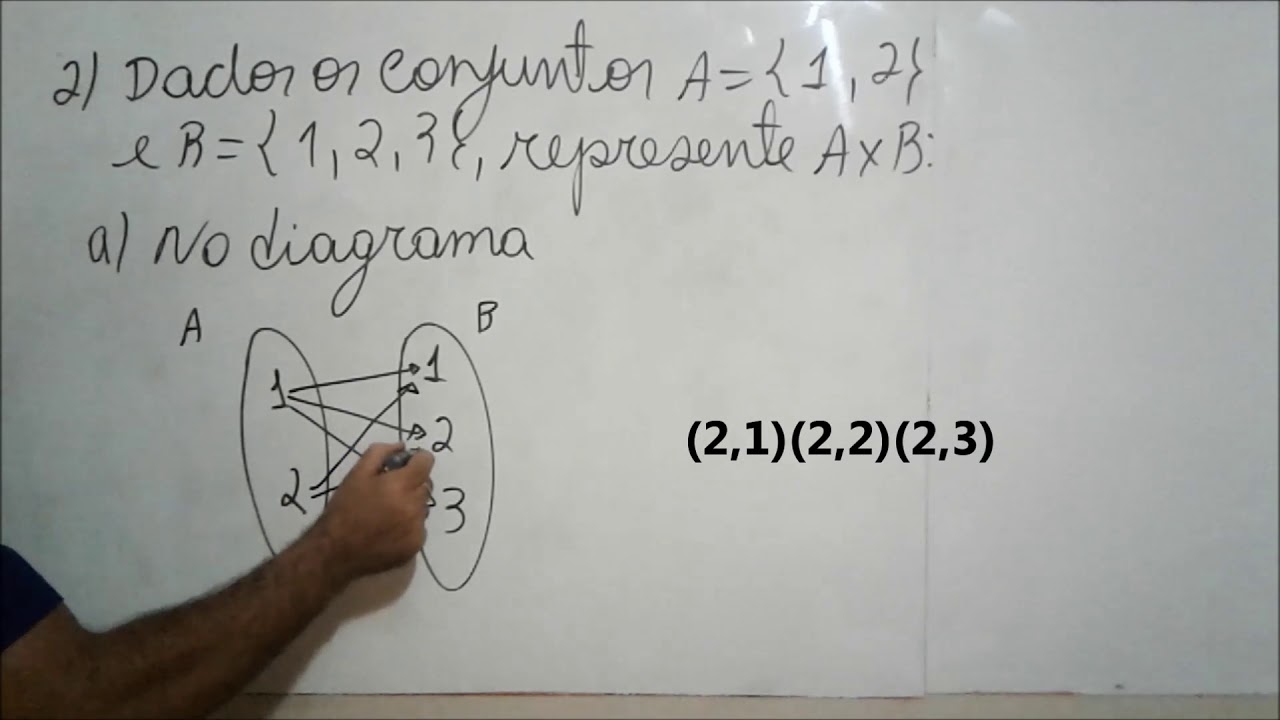 2) Dados os conjuntos A={1,2}
e B={1,2,3}, represente AxB:
a) No diagrama
A B
1 1
2
2 3
(2,1)(2,2)(2,3)